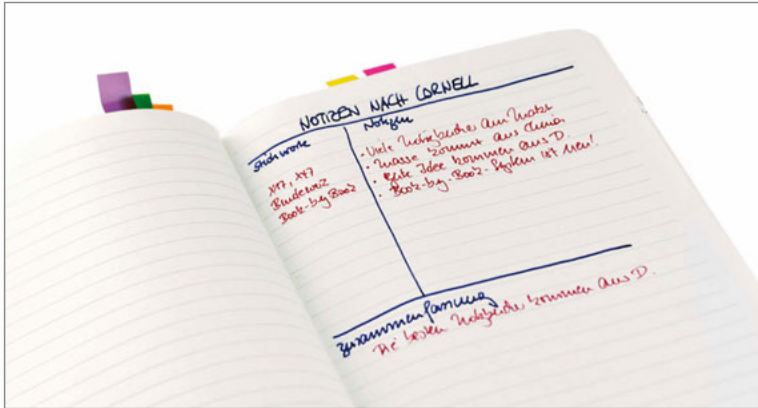 NOTIZEN NACH CORNELL
Stichworte
Notizen
X17, X47
Book-by-Book
• Viele Notizbücher am Markt
• Masse kommt aus China
• Gute Idee kommen aus D.
• Book-by-Book-System ist neu!
Zusammenfassung
Die besten Notizbücher kommen aus D.